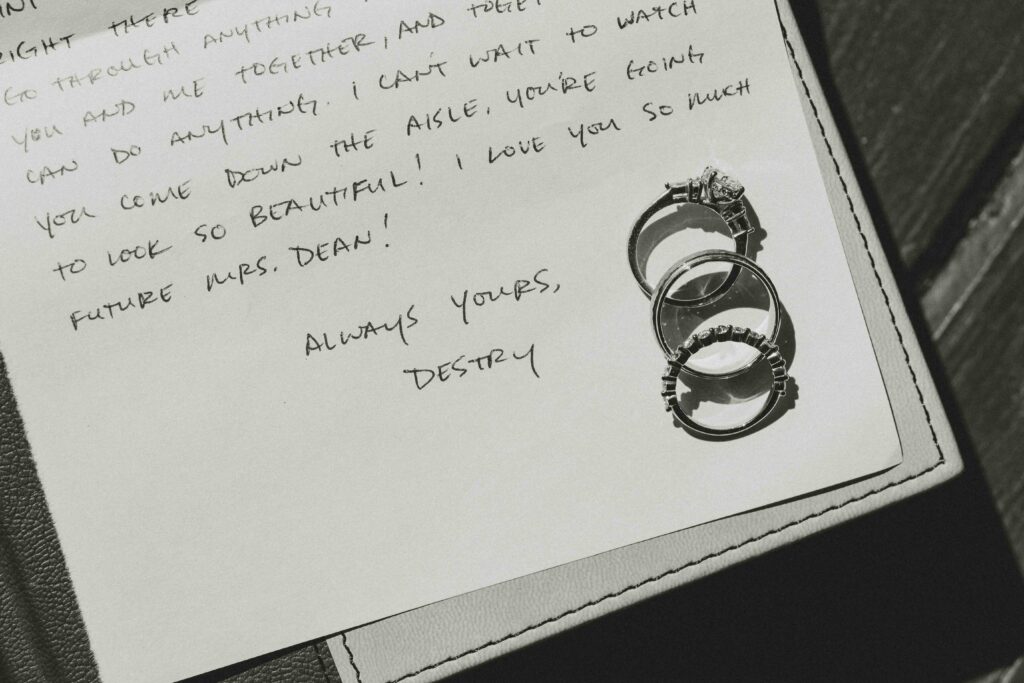 RIGHT THERE
GO THROUGH ANYTHING
YOU AND ME TOGETHER, AND
CAN DO ANYTHING. I CAN'T WAIT TO WATCH
YOU COME DOWN THE AISLE, YOU'RE GOING
TO LOOK SO BEAUTIFUL! I LOVE YOU SO MUCH
FUTURE MRS. DEAN!
ALWAYS YOURS,
DESTRY